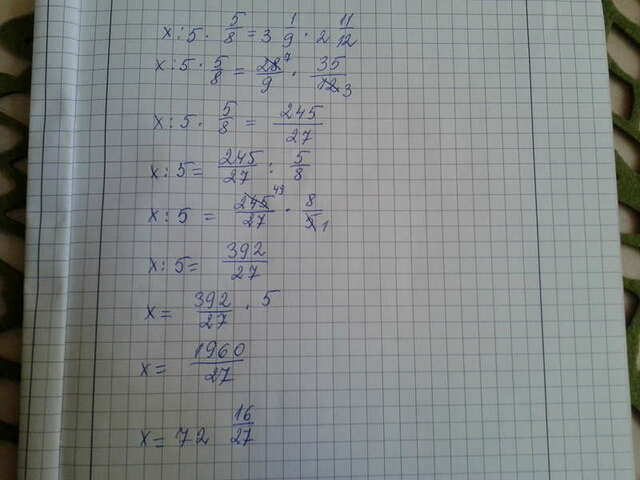 x : 5 · 5/8 = 3 1/9 · 2 11/12
x : 5 · 5/8 = 28 7/9 · 35/12 3
x : 5 · 5/8 = 245/27
x : 5 = 245/27 : 5/8
x : 5 = 245 49/27 · 8/5 1
x : 5 = 392/27
x = 392/27 · 5
x = 1960/27
x = 72 16/27